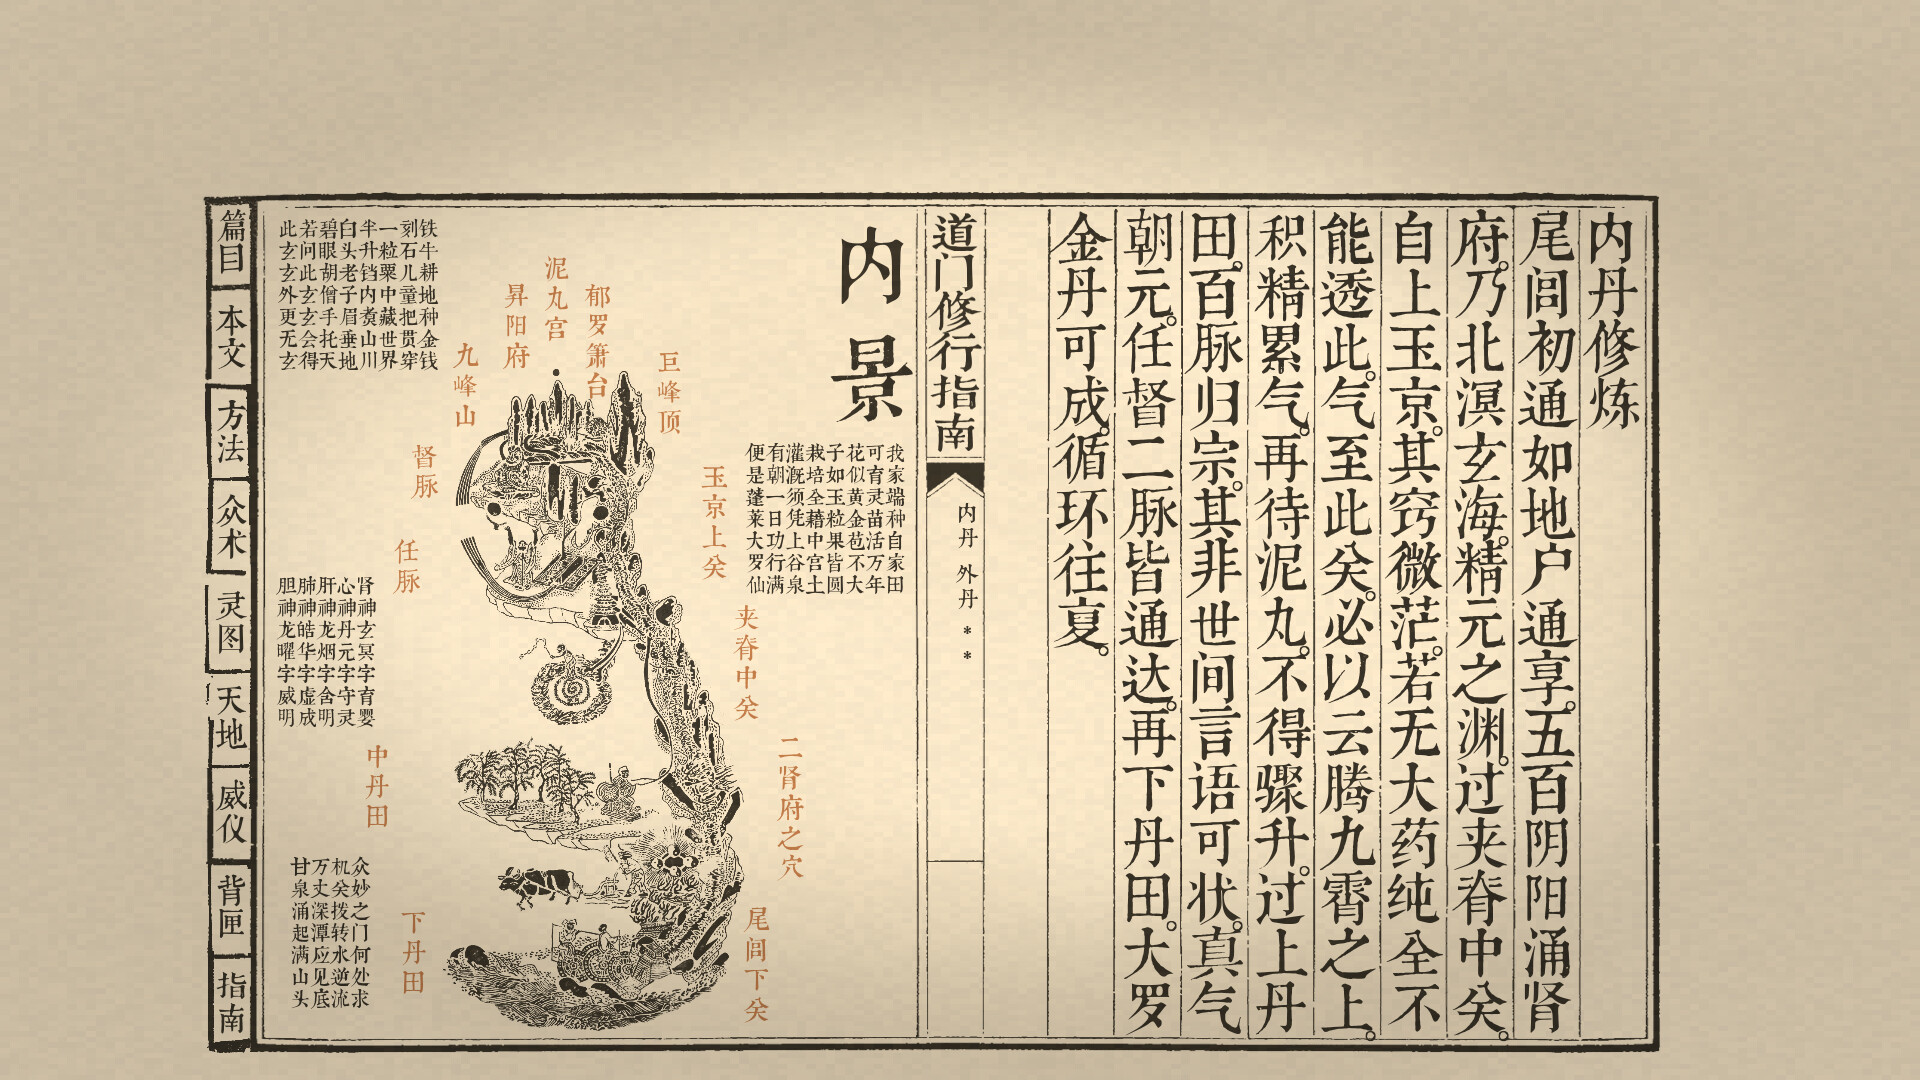 内丹修炼
尾闾初通如地户通享。五百阴阳涌肾
府。乃北溟玄海。精元之渊。过夹脊中关。
自上玉京。其窍微茫。若无大药纯全不
能透此。气至此关。必以云腾九霄之上。
积精累气。再待泥丸。不得骤升。过上丹
田。百脉归宗。其非世间言语可状。真气
朝元。任督二脉皆通达。再下丹田。大罗
金丹可成。循环往复。
道门修行指南
内丹 外丹 * *
内景
我家端种自家田
可育灵苗活万年
花似黄金苞不大
子如玉粒果皆圆
栽培全藉中宫土
灌溉须凭上谷泉
有朝一日功行满
便是蓬莱大罗仙
巨峰顶
郁罗箫台
泥丸宫
昇阳府
九峰山
督脉
任脉
玉京上关
夹脊中关
二肾府之穴
尾闾下关
中丹田
下丹田
铁牛耕地种金钱
刻石儿童把贯穿
一粒粟中藏世界
半升铛内煮山川
白头老子眉垂地
碧眼胡僧手托天
若问此玄玄会得
此玄玄外更无玄
肾神玄冥字育婴
心神丹元字守灵
肝神龙烟字含明
肺神皓华字虚成
胆神龙曜字威明
众妙之门何处求
机关拨转水逆流
万丈深潭应见底
甘泉涌起满山头
篇目
本文
方法
众术
灵图
天地
威仪
背匣
指南